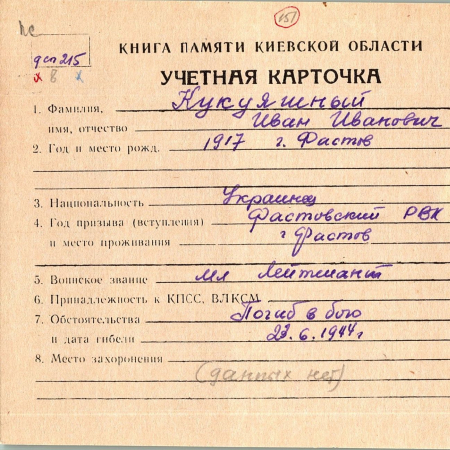 151
пс
дсп 215
х 8 х
КНИГА ПАМЯТИ КИЕВСКОЙ ОБЛАСТИ
УЧЕТНАЯ КАРТОЧКА
1. Фамилия, Кукуяшный
имя, отчество Иван Иванович
2. Год и место рожд. 1917 г. Фастов
3. Национальность Украинец
4. Год призыва (вступления) Фастовский РВК
и место проживания г Фастов
5. Воинское звание мл Лейтенант
6. Принадлежность к КПСС, ВЛКСМ
7. Обстоятельства Погиб в бою
и дата гибели 23.6.1944 г
8. Место захоронения
(данных нет)